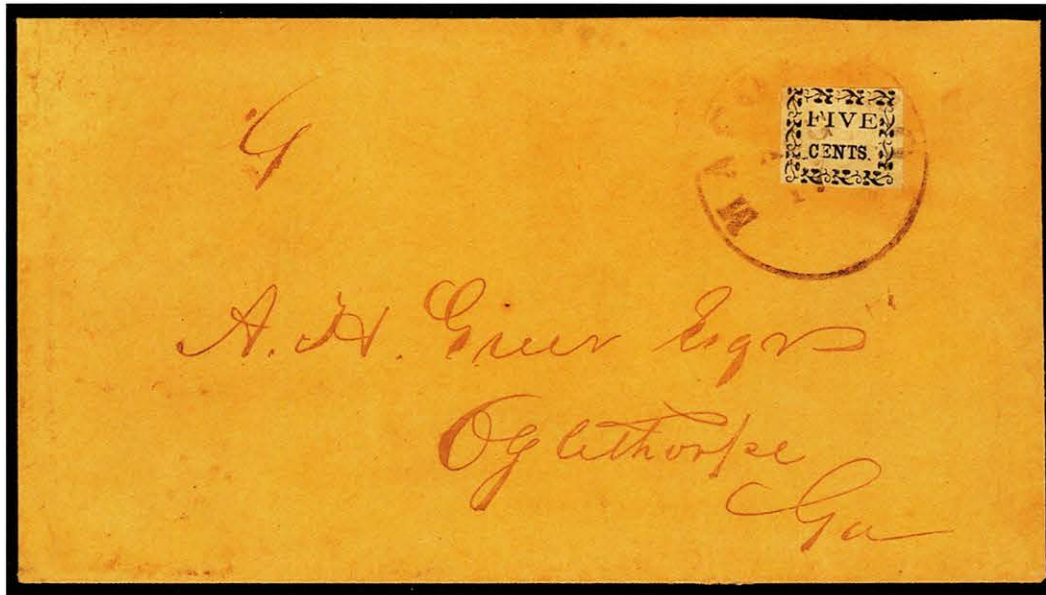 FIVE
CENTS.
A. H. Greer Esqrs
Oglethorpe
Ga